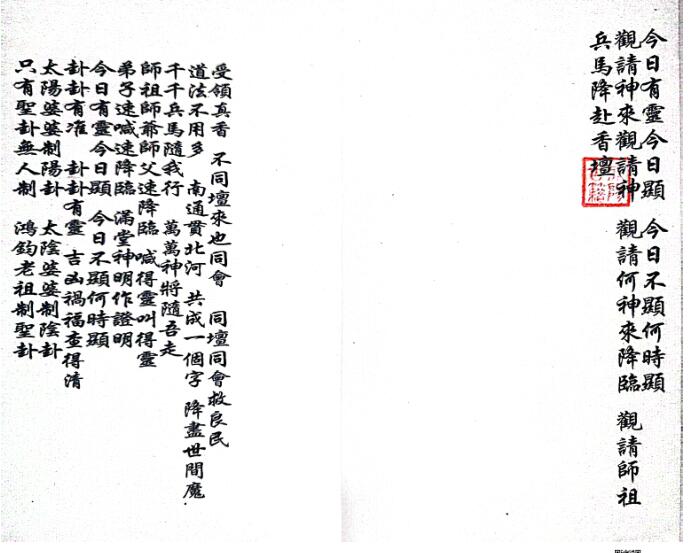 今日有靈今日顯 今日不顯何時顯
觀請神來觀請神 觀請何神來降臨 觀請師祖
兵馬降赴香壇
受領真香 不同壇來也同會 同壇同會救良民
道法不用多 南通貫北河 共成一個字 降盡世間魔
千千兵馬隨我行 萬萬神將隨吾走
師祖師爺師父速降臨 喊得靈叫得靈
弟子速喊速降臨 滿堂神明作證明
今日有靈今日顯 今日不顯何時顯
卦卦有准 卦卦有靈 吉凶禍福查得清
太陽婆婆制陽卦 太陰婆婆制陰卦
只有聖卦無人制 鴻鈞老祖制聖卦